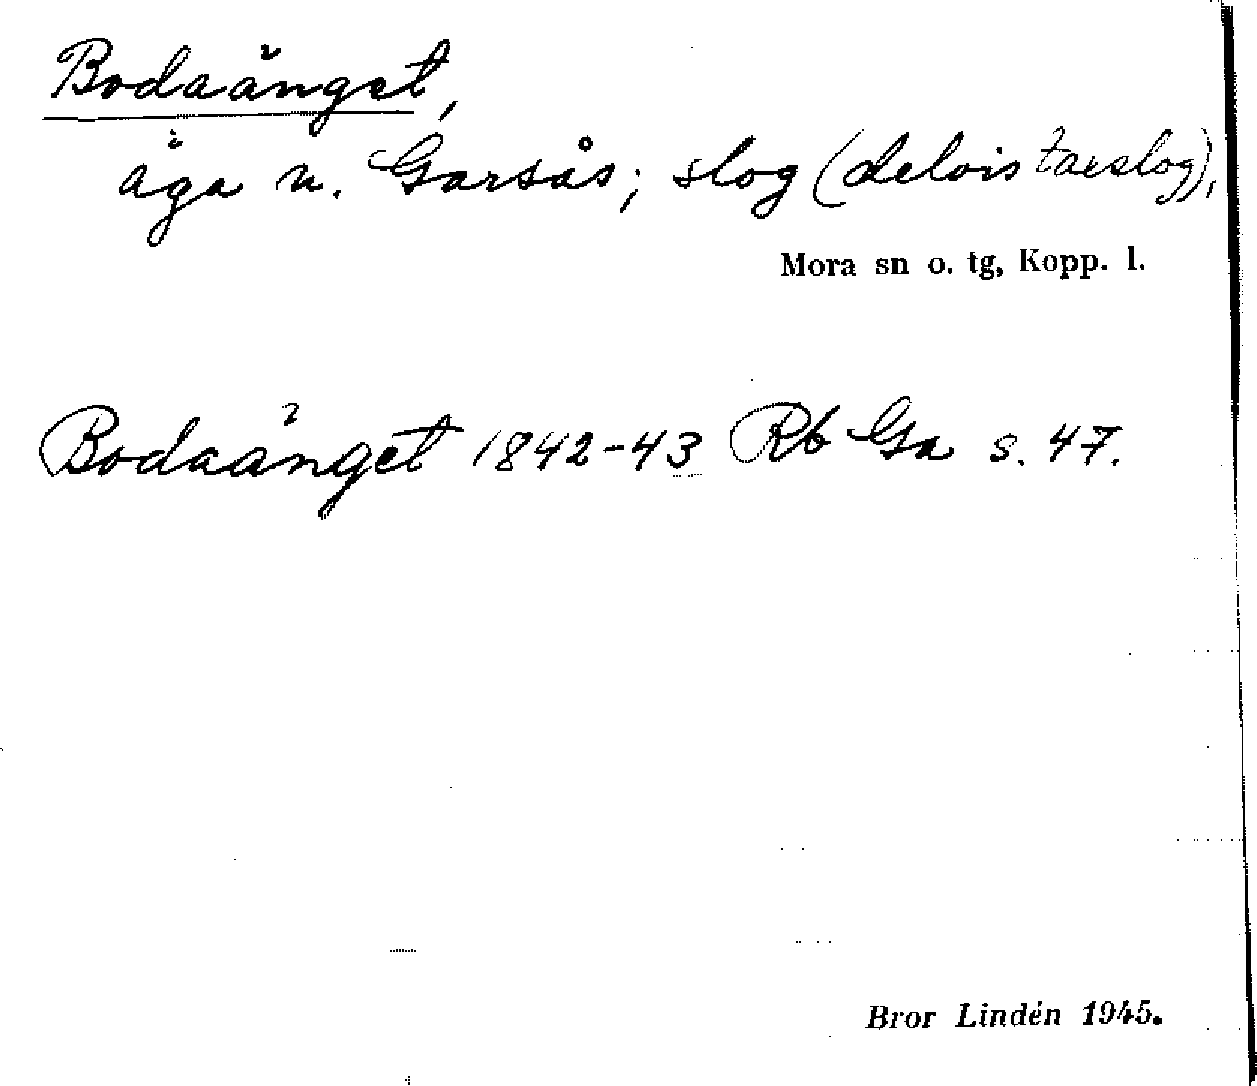 Bodaänget,
äga n. Garsås; slog (delvis taeslog),
Mora sn o. tg, Kopp. l.
Bodaänget 1842-43 Rb Ga s. 47.
Bror Lindén 1945.